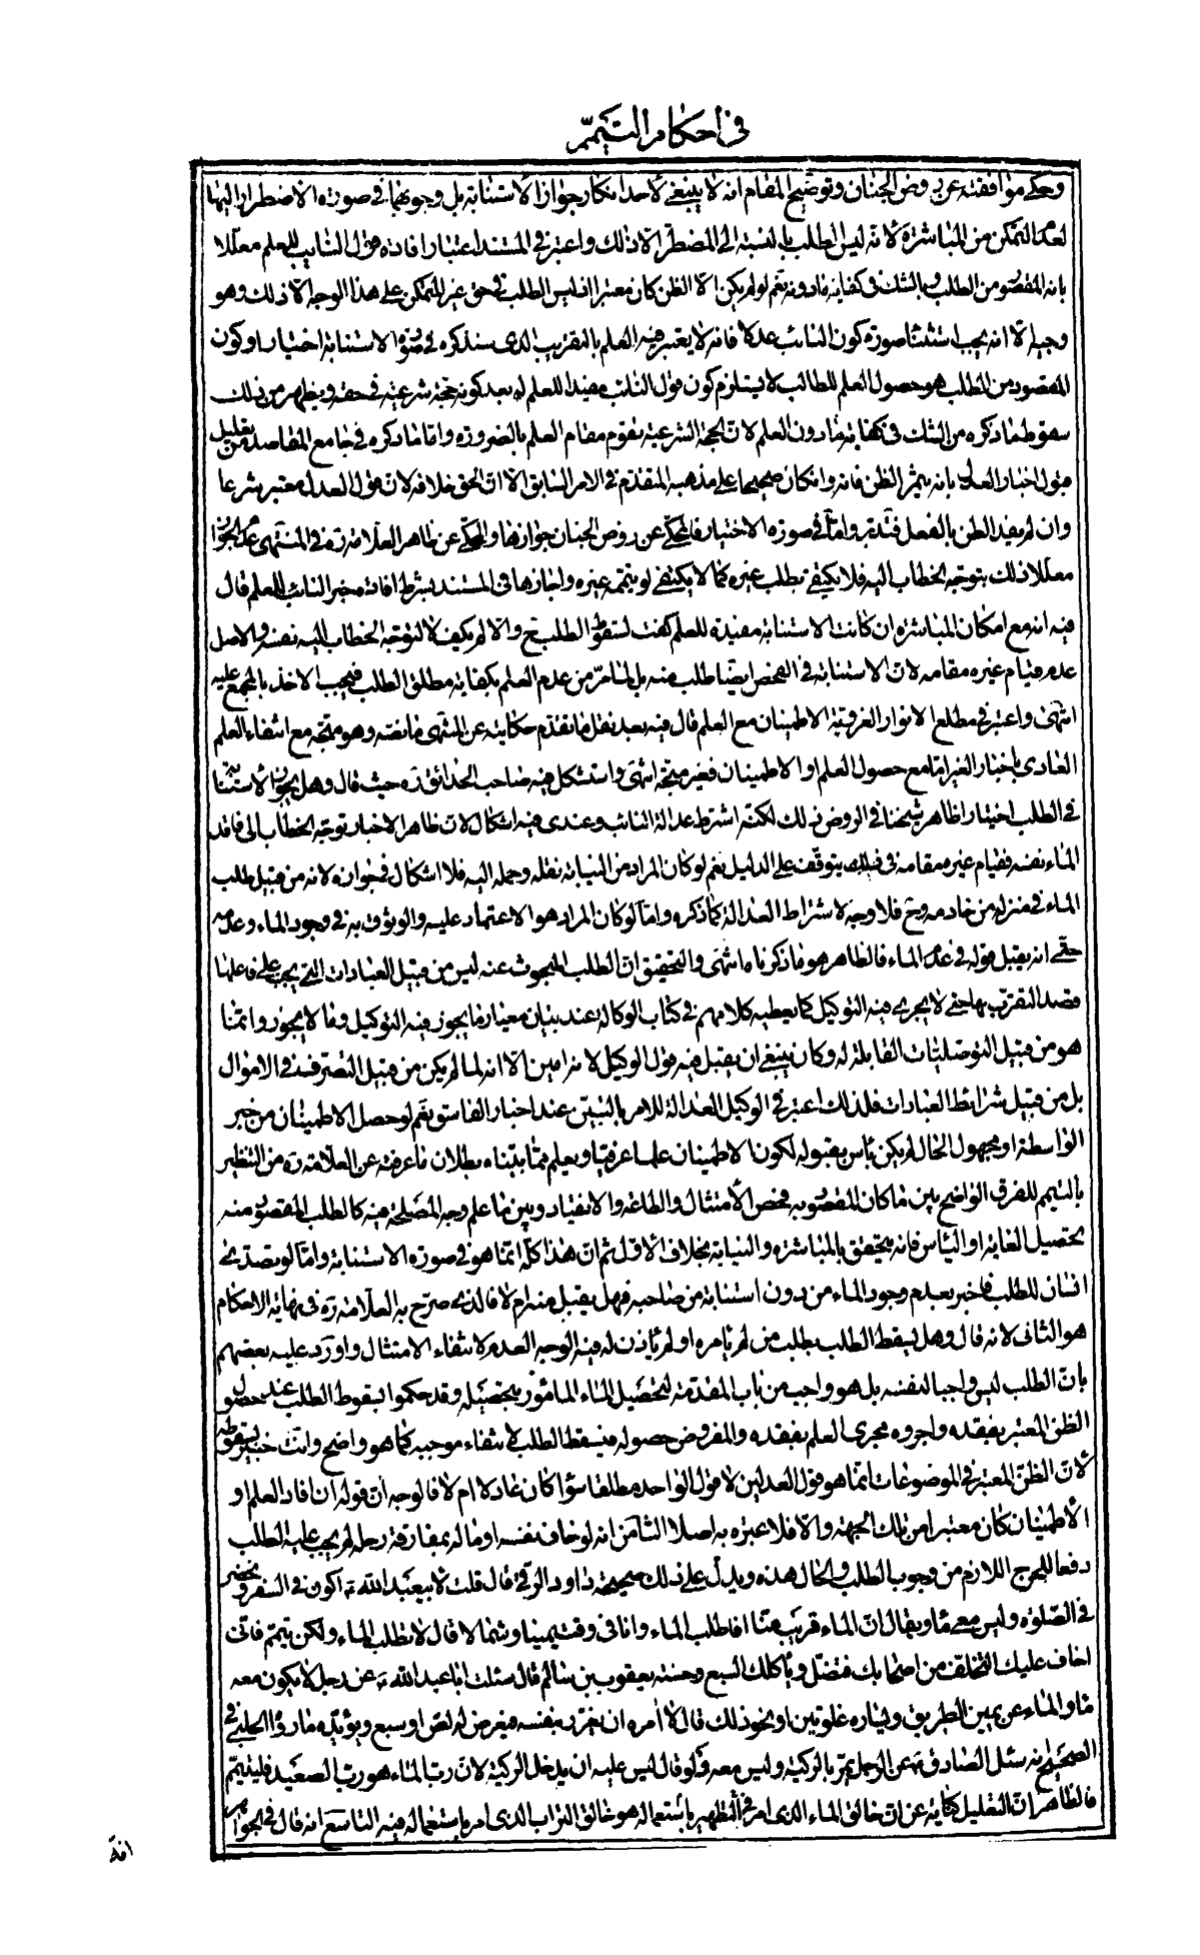 في احكام التيمم
وحكى موافقته عن روض الجنان وتوضيح المقام انه لا ينبغي لاحد انكار جواز الاستنابة بل وجوبها في صورة الاضطرار اليها
لعدم التمكن من المباشرة لانه ليس الطلب بالنسبة الى المضطر الا ذلك واعتبر في المستند اعتبار افادة قول النائب للعلم معللا
بانه المقصود من الطلب وبالشك في كفاية مادونه نعم لو لم يكن الا الظن كان معتبرا اذ ليس الطلب في حق غير المتمكن على هذا الوجه الا ذلك وهو
وجيه الا انه يجب استثناء صورة كون النائب عدلا فانه لا يعتبر فيه العلم بالتقريب الذي سنذكره في صورة الاستنابة اختيارا وكون
المقصود من الطلب هو حصول العلم للطالب لا يستلزم كون قول النائب مفيدا للعلم له بعد كونه حجة شرعية في حقه ويظهر من ذلك
سقوط ما ذكره من الشك في كفاية مادون العلم لان الحجة الشرعية تقوم مقام العلم بالضرورة واما ما ذكره في جامع المقاصد من تعليل
قبول اخبار العدل بانه يثمر الظن فانه وان كان صحيحا على مذهبه المتقدم في الامر السابق الا ان الحق خلافه لان قول العدل معتبر شرعا
وان لم يفد الظن بالفعل فتدبر واما في صورة الاختيار فالمحكي عن روض الجنان جوازها والمحكي عن ظاهر العلامة ره في المنتهى عدم الجواز
معللا ذلك بتوجه الخطاب اليه فلا يكتفي بطلب غيره كما لا يكتفي لو يممه غيره واجازها في المستند بشرط افادة خبر النائب للعلم قال
فيه انه مع امكان المباشرة ان كانت الاستنابة مفيدة للعلم كفت لسقوط الطلب ح والا لم يكف لا لتوجه الخطاب اليه نفسه والاصل
عدم قيام غيره مقامه لان الاستنابة في الفحص ايضا طلب منه بل لما مر من عدم العلم بكفاية مطلق الطلب فيجب الاخذ بالمجمع عليه
انتهى واعتبر في مطلع الانوار الغروية الاطمينان مع العلم قال فيه بعد نقل ما تقدم حكايته عن المنتهى ما نصه وهو متجه مع انتفاء العلم
العادي باخبار الغير اما مع حصول العلم او الاطمينان فغير متجه انتهى واستشكل فيه صاحب الحدائق ره حيث قال وهل يجوز الاستنابة
في الطلب اختيارا ظاهر شيخنا في الروض ذلك لكنه اشترط عدالة النائب وعندي فيه اشكال لان ظاهر الاخبار توجه الخطاب الى فاقد
الماء نفسه فقيام غيره مقامه في ذلك يتوقف على الدليل نعم لو كان المراد من النيابة نقله وحمله اليه فلا اشكال في جوازه لانه من قبيل طلب
الماء في منزله من خادمه وح فلا وجه لاشتراط العدالة كما ذكره واما لو كان المراد هو الاعتماد عليه والوثوق به في وجود الماء وعدمه
حتى انه يقبل قوله في عدم الماء فالظاهر هو ما ذكرناه انتهى والتحقيق ان الطلب المبحوث عنه ليس من قبيل العبادات التي يجب على فاعلها
قصد التقرب بها حتى لا يجري فيه التوكيل كما يعطيه كلامهم في كتاب الوكالة عند بيان معيار ما يجوز فيه التوكيل وما لا يجوز وانما
هو من قبيل التوصليات القابلة له وكان ينبغي ان يقبل فيه قول الوكيل لانه امين الا انه لما لم يكن من قبيل التصرف في الاموال
بل من قبيل شرائط العبادات فلذلك اعتبر في الوكيل العدالة للامر بالتبين عند اخبار الفاسق نعم لو حصل الاطمينان من خبر
الواسطة او مجهول الحال لم يكن بأس بقبوله لكون الاطمينان علما عرفيا ويعلم مما بيناه بطلان ما عرفته عن العلامة ره من التنظير
بالتيمم للفرق الواضح بين ما كان المقصود به محض الامتثال والطاعة والانقياد وبين ما علم وجه المصلحة فيه كالطلب المقصود منه
تحصيل الغاية او اليأس فانه يتحقق بالمباشرة والنيابة بخلاف الاول ثم ان هذا كله انما هو في صورة الاستنابة واما لو تصدى
انسان للطلب فاخبر بعدم وجود الماء من دون استنابة من صاحبه فهل يقبل منه ام لا فالذي صرح به العلامة ره في نهاية الاحكام
هو الثاني لانه قال وهل يسقط الطلب بطلب من لم يأمره او لم يأذن له فيه الوجه العدم لانتفاء الامتثال واورد عليه بعضهم
بان الطلب ليس واجبا لنفسه بل هو واجب من باب المقدمة لتحصيل الماء المأمور بتحصيله وقد حكموا بسقوط الطلب عند حصول
الظن المعتبر بفقده واجروه مجرى العلم بفقده والمفروض حصوله فيسقط الطلب لانتفاء موجبه كما هو واضح وانت خبير بسقوطه
لان الظن المعتبر في الموضوعات انما هو قول العدلين لا قول الواحد مطلقا سواء كان عادلا ام لا فالوجه ان قوله ان افاد العلم او
الاطمينان كان معتبرا من تلك الجهة والا فلا عبرة به اصلا الثامن انه لو خاف نفسه او ماله بمفارقة رحله لم يجب عليه الطلب
دفعا للحرج اللازم من وجوب الطلب والحال هذه ويدل على ذلك صحيحة داود الرقي قال قلت لابيعبد الله ع اكون في السفر وتحضر
في الصلوة وليس معي ماء ويقال ان الماء قريب منا افاطلب الماء وانا في وقت يمينا وشمالا قال لا تطلب الماء ولكن تيمم فاني
اخاف عليك التخلف من اصحابك فتضل ويأكلك السبع وحسنة يعقوب بن سالم قال سئلت ابا عبد الله ع عن رجل لا يكون معه
ماء والماء عن يمين الطريق ويساره غلوتين او نحو ذلك قال لا امره ان يغرر بنفسه فيعرض له لص او سبع ويؤيده ما رواه الحلبي في
الصحيح انه سئل الصادق ع عن الرجل يمر بالركية وليس معه دلو قال ليس عليه ان يدخل الركية لان رب الماء هو رب الصعيد فليتيمم
فالظاهر ان التعليل كناية عن ان خالق الماء الذي امر في التطهير باستعماله هو خالق التراب الذي امر باستعماله فيه التاسع انه قال في الجواهر
انه